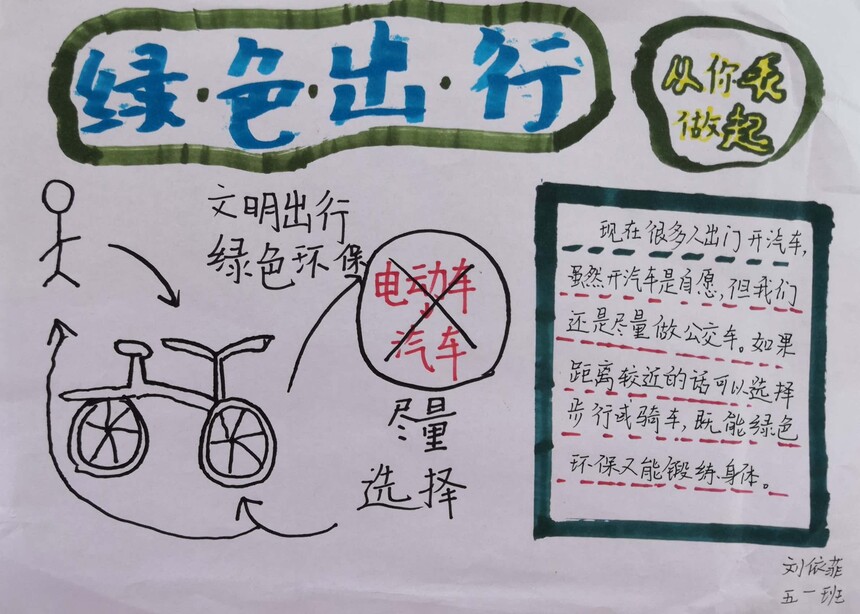 绿·色·出·行
从你我
做起
文明出行
绿色环保
电动车
汽车
尽量
选择
现在很多人出门开汽车,
虽然开汽车是自愿,但我们
还是尽量做公交车。如果
距离较近的话可以选择
步行或骑车,既能绿色
环保又能锻练身体。
刘依菲
五一班